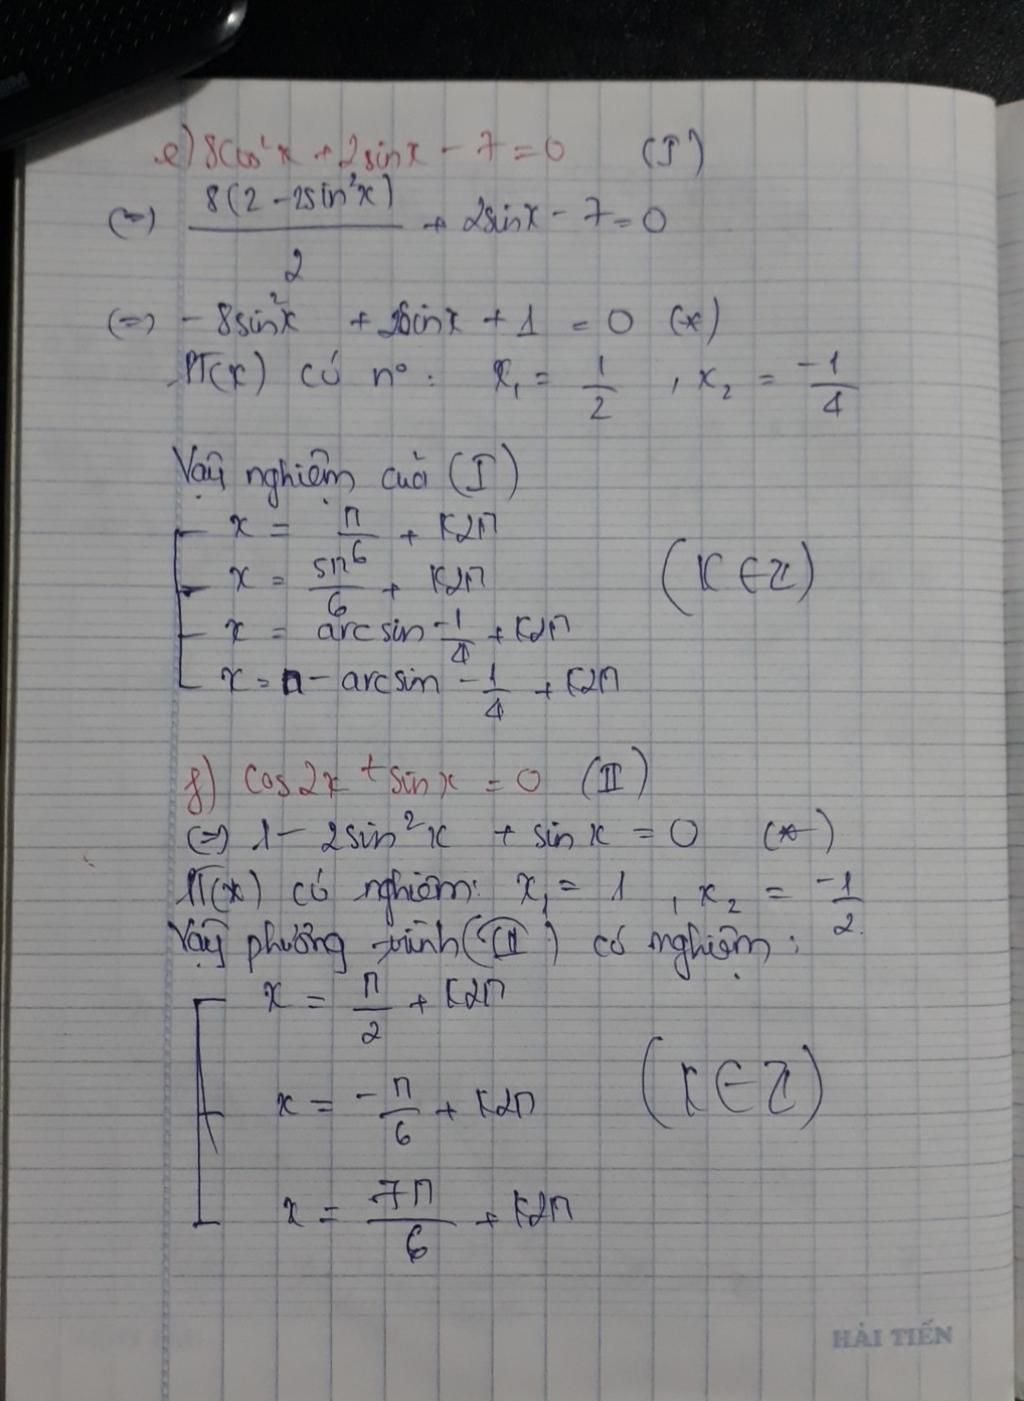 e) 8cos²x + 2sinx - 7 = 0 (I)
(=) 8(2 - 2sin²x) / 2 + 2sinx - 7 = 0
(=) - 8sin²x + 2sinx + 1 = 0 (*)
PT(x) có n°: x₁ = 1/2 , x₂ = -1/4
Vậy nghiệm cuả (I)
x = π/6 + k2π
x = 5π/6 + k2π (K ∈ Z)
x = arcsin -1/4 + k2π
x = π - arcsin -1/4 + k2π
f) cos2x + sinx = 0 (II)
(=) 1 - 2sin²x + sinx = 0 (*)
PT(x) có nghiệm: x₁ = 1 , x₂ = -1/2
Vậy phương trình (II) có nghiệm:
x = π/2 + k2π
x = -π/6 + k2π (K ∈ Z)
x = 7π/6 + k2π
HẢI TIẾN